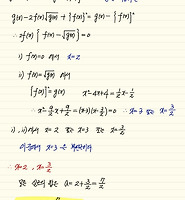 g(x) - 2f(x)√g(x) + {f(x)}² = g(x) - {f(x)}²
∴ 2f(x){f(x) - √g(x)} = 0
i) f(x) = 0 에서 x = 2
ii) f(x) = √g(x) 에서
{f(x)}² = g(x) x² - 4x + 4 = ½x - ½
∴ x² - 9/2 x + 9/2 = (x-3)(x - 3/2) = 0 ∴ x = 3 또는 x = 3/2
i), ii)에서 x = 2 또는 x = 3 또는 x = 3/2
x = 3 은
∴ x = 2, x = 3/2
a = 2 + 3/2 = 7/2